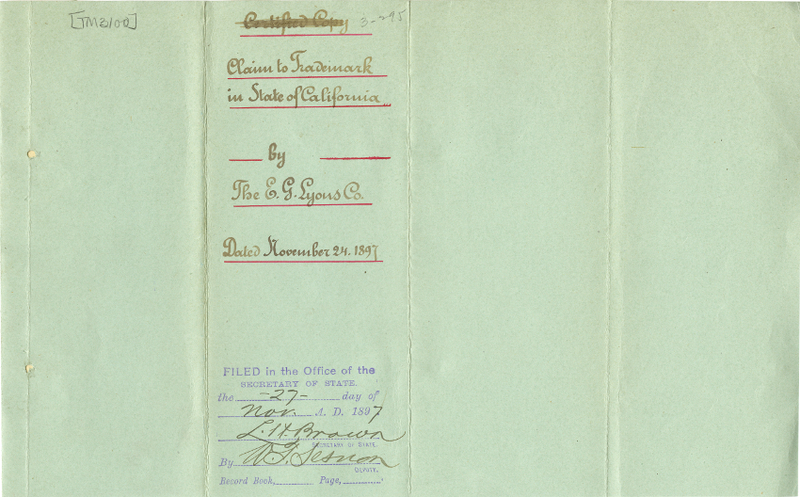 [TM3100]
Certified Copy 3-295
Claim to Trademark
in State of California
by
The E. G. Lyons Co.
Dated November 24. 1897
FILED in the Office of the
SECRETARY OF STATE.
the -27- day of
Nov. A. D. 1897
L. H. Brown
SECRETARY OF STATE.
By W. T. Sesnon
DEPUTY.
Record Book, Page,